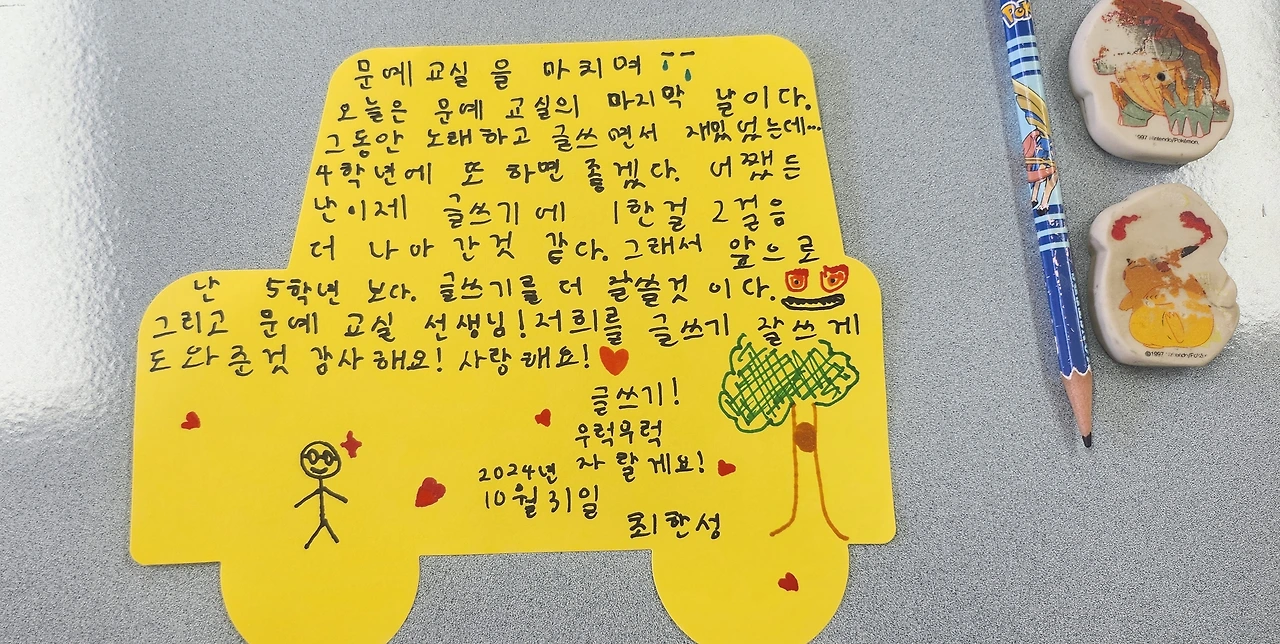 문예교실을 마치며
오늘은 문예 교실의 마지막 날이다.
그동안 노래하고 글쓰면서 재밌었는데...
4학년에 또 하면 좋겠다. 어쨌든
난 이제 글쓰기에 1한걸 2걸음
더 나아간것 같다. 그래서 앞으로
난 5학년 보다. 글쓰기를 더 잘쓸것 이다.
그리고 문예 교실 선생님! 저희를 글쓰기 잘쓰게
도와준것 감사해요! 사랑해요!
글쓰기!
우럭우럭
자랄게요!
2024년
10월 31일
최한성
Pok
©1997 Nintendo/Pokémon.
©1997 Nintendo/Poké